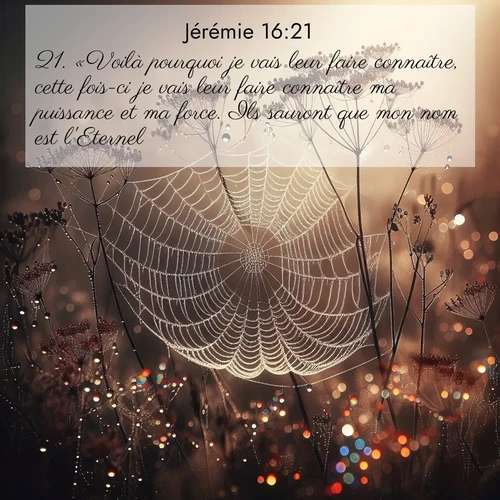 Jérémie 16:21
21. «Voilà pourquoi je vais leur faire connaître,
cette fois-ci je vais leur faire connaître ma
puissance et ma force. Ils sauront que mon nom
est l'Eternel